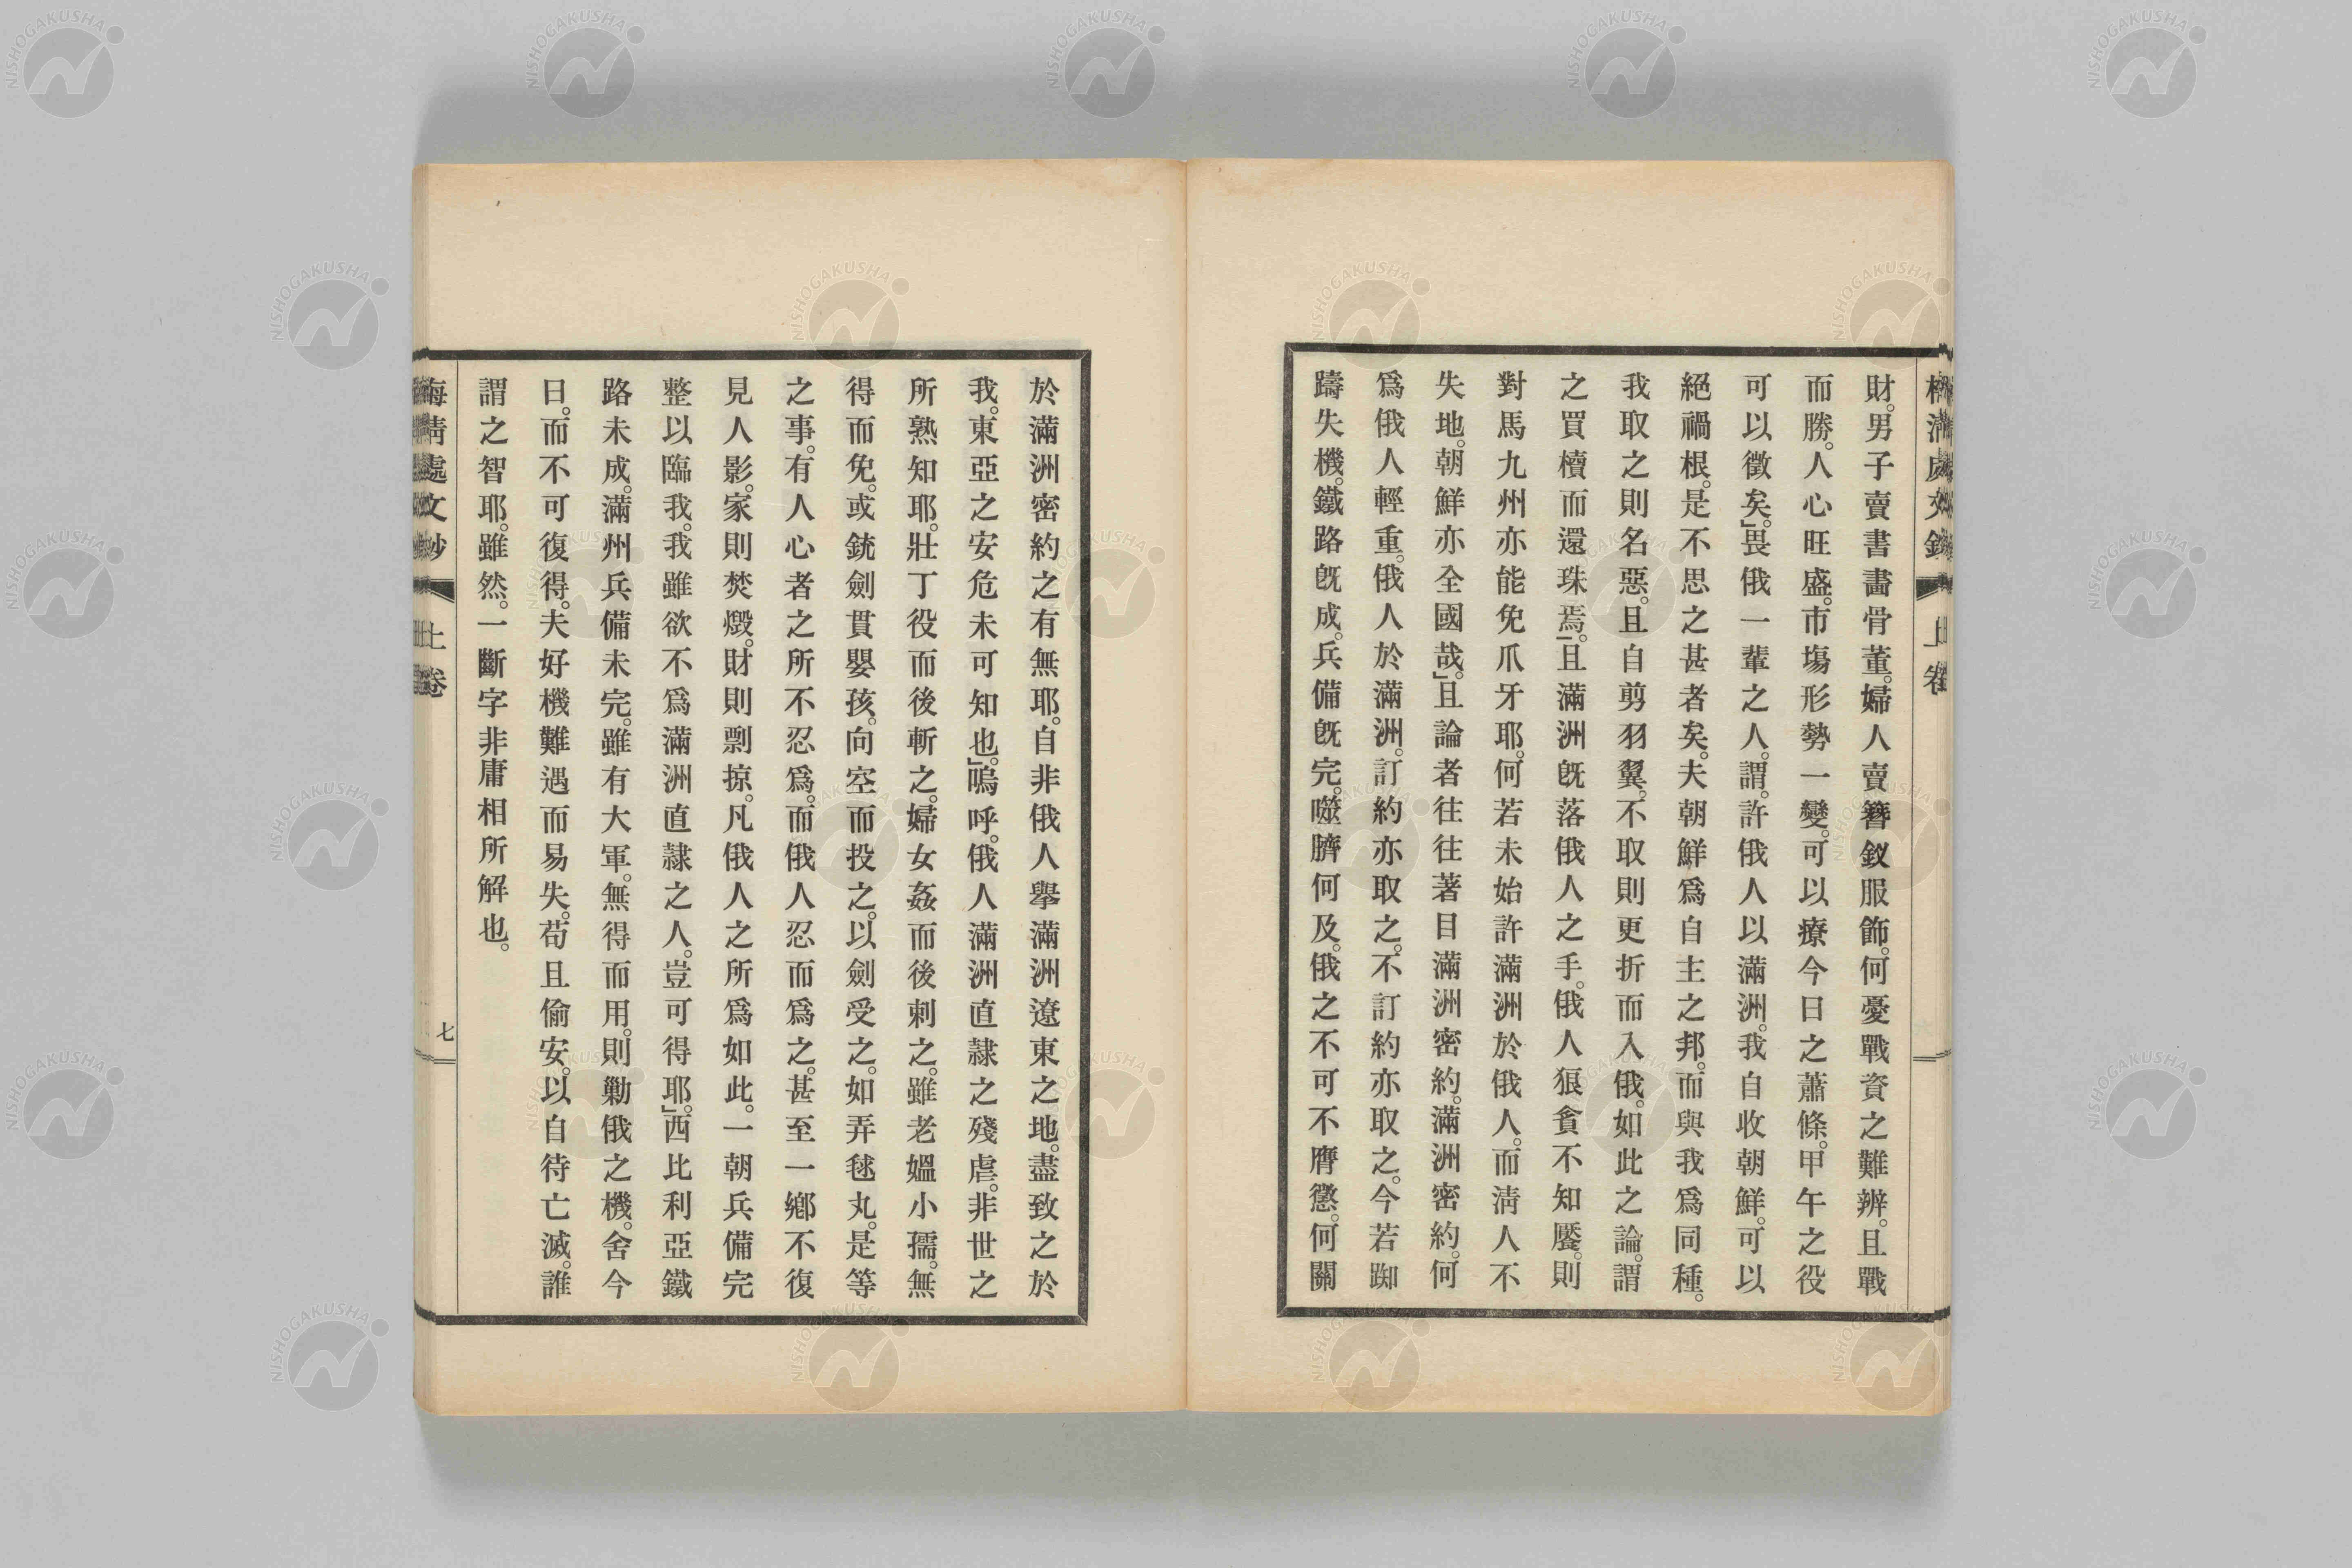 財。男子賣書畵骨董。婦人賣簪釵服飾。何憂戰資之難辨。且戰
而勝。人心旺盛。市塲形勢一變。可以療今日之蕭條。甲午之役
可以徵矣。」畏俄一輩之人。謂。許俄人以滿洲。我自收朝鮮。可以
絕禍根。是不思之甚者矣。夫朝鮮爲自主之邦。而與我爲同種。
我取之則名惡。且自剪羽翼。不取則更折而入俄。如此之論。謂
之買櫝而還珠焉。」且滿洲旣落俄人之手。俄人狠貪不知饜。則
對馬九州亦能免爪牙耶。何若未始許滿洲於俄人。而淸人不
失地。朝鮮亦全國哉。」且論者往往著目滿洲密約。滿洲密約。何
爲俄人輕重。俄人於滿洲。訂約亦取之。不訂約亦取之。今若踟
躊失機。鐵路旣成。兵備旣完。噬臍何及。俄之不可不膺懲。何關
於滿洲密約之有無耶。自非俄人擧滿洲遼東之地。盡致之於
我。東亞之安危未可知也。」嗚呼。俄人滿洲直隷之殘虐。非世之
所熟知耶。壯丁役而後斬之。婦女姦而後刺之。雖老媼小孺。無
得而免。或銃劍貫嬰孩。向空而投之。以劍受之。如弄毬丸。是等
之事。有人心者之所不忍爲。而俄人忍而爲之。甚至一鄕不復
見人影。家則焚燬。財則剽掠。凡俄人之所爲如此。一朝兵備完
整以臨我。我雖欲不爲滿洲直隷之人。豈可得耶。」西比利亞鐵
路未成。滿州兵備未完。雖有大軍。無得而用。則勦俄之機。舍今
日。而不可復得。夫好機難遇而易失。苟且偷安。以自待亡滅。誰
謂之智耶。雖然。一斷字非庸相所解也。
上卷
七
NISHOGAKUSHA